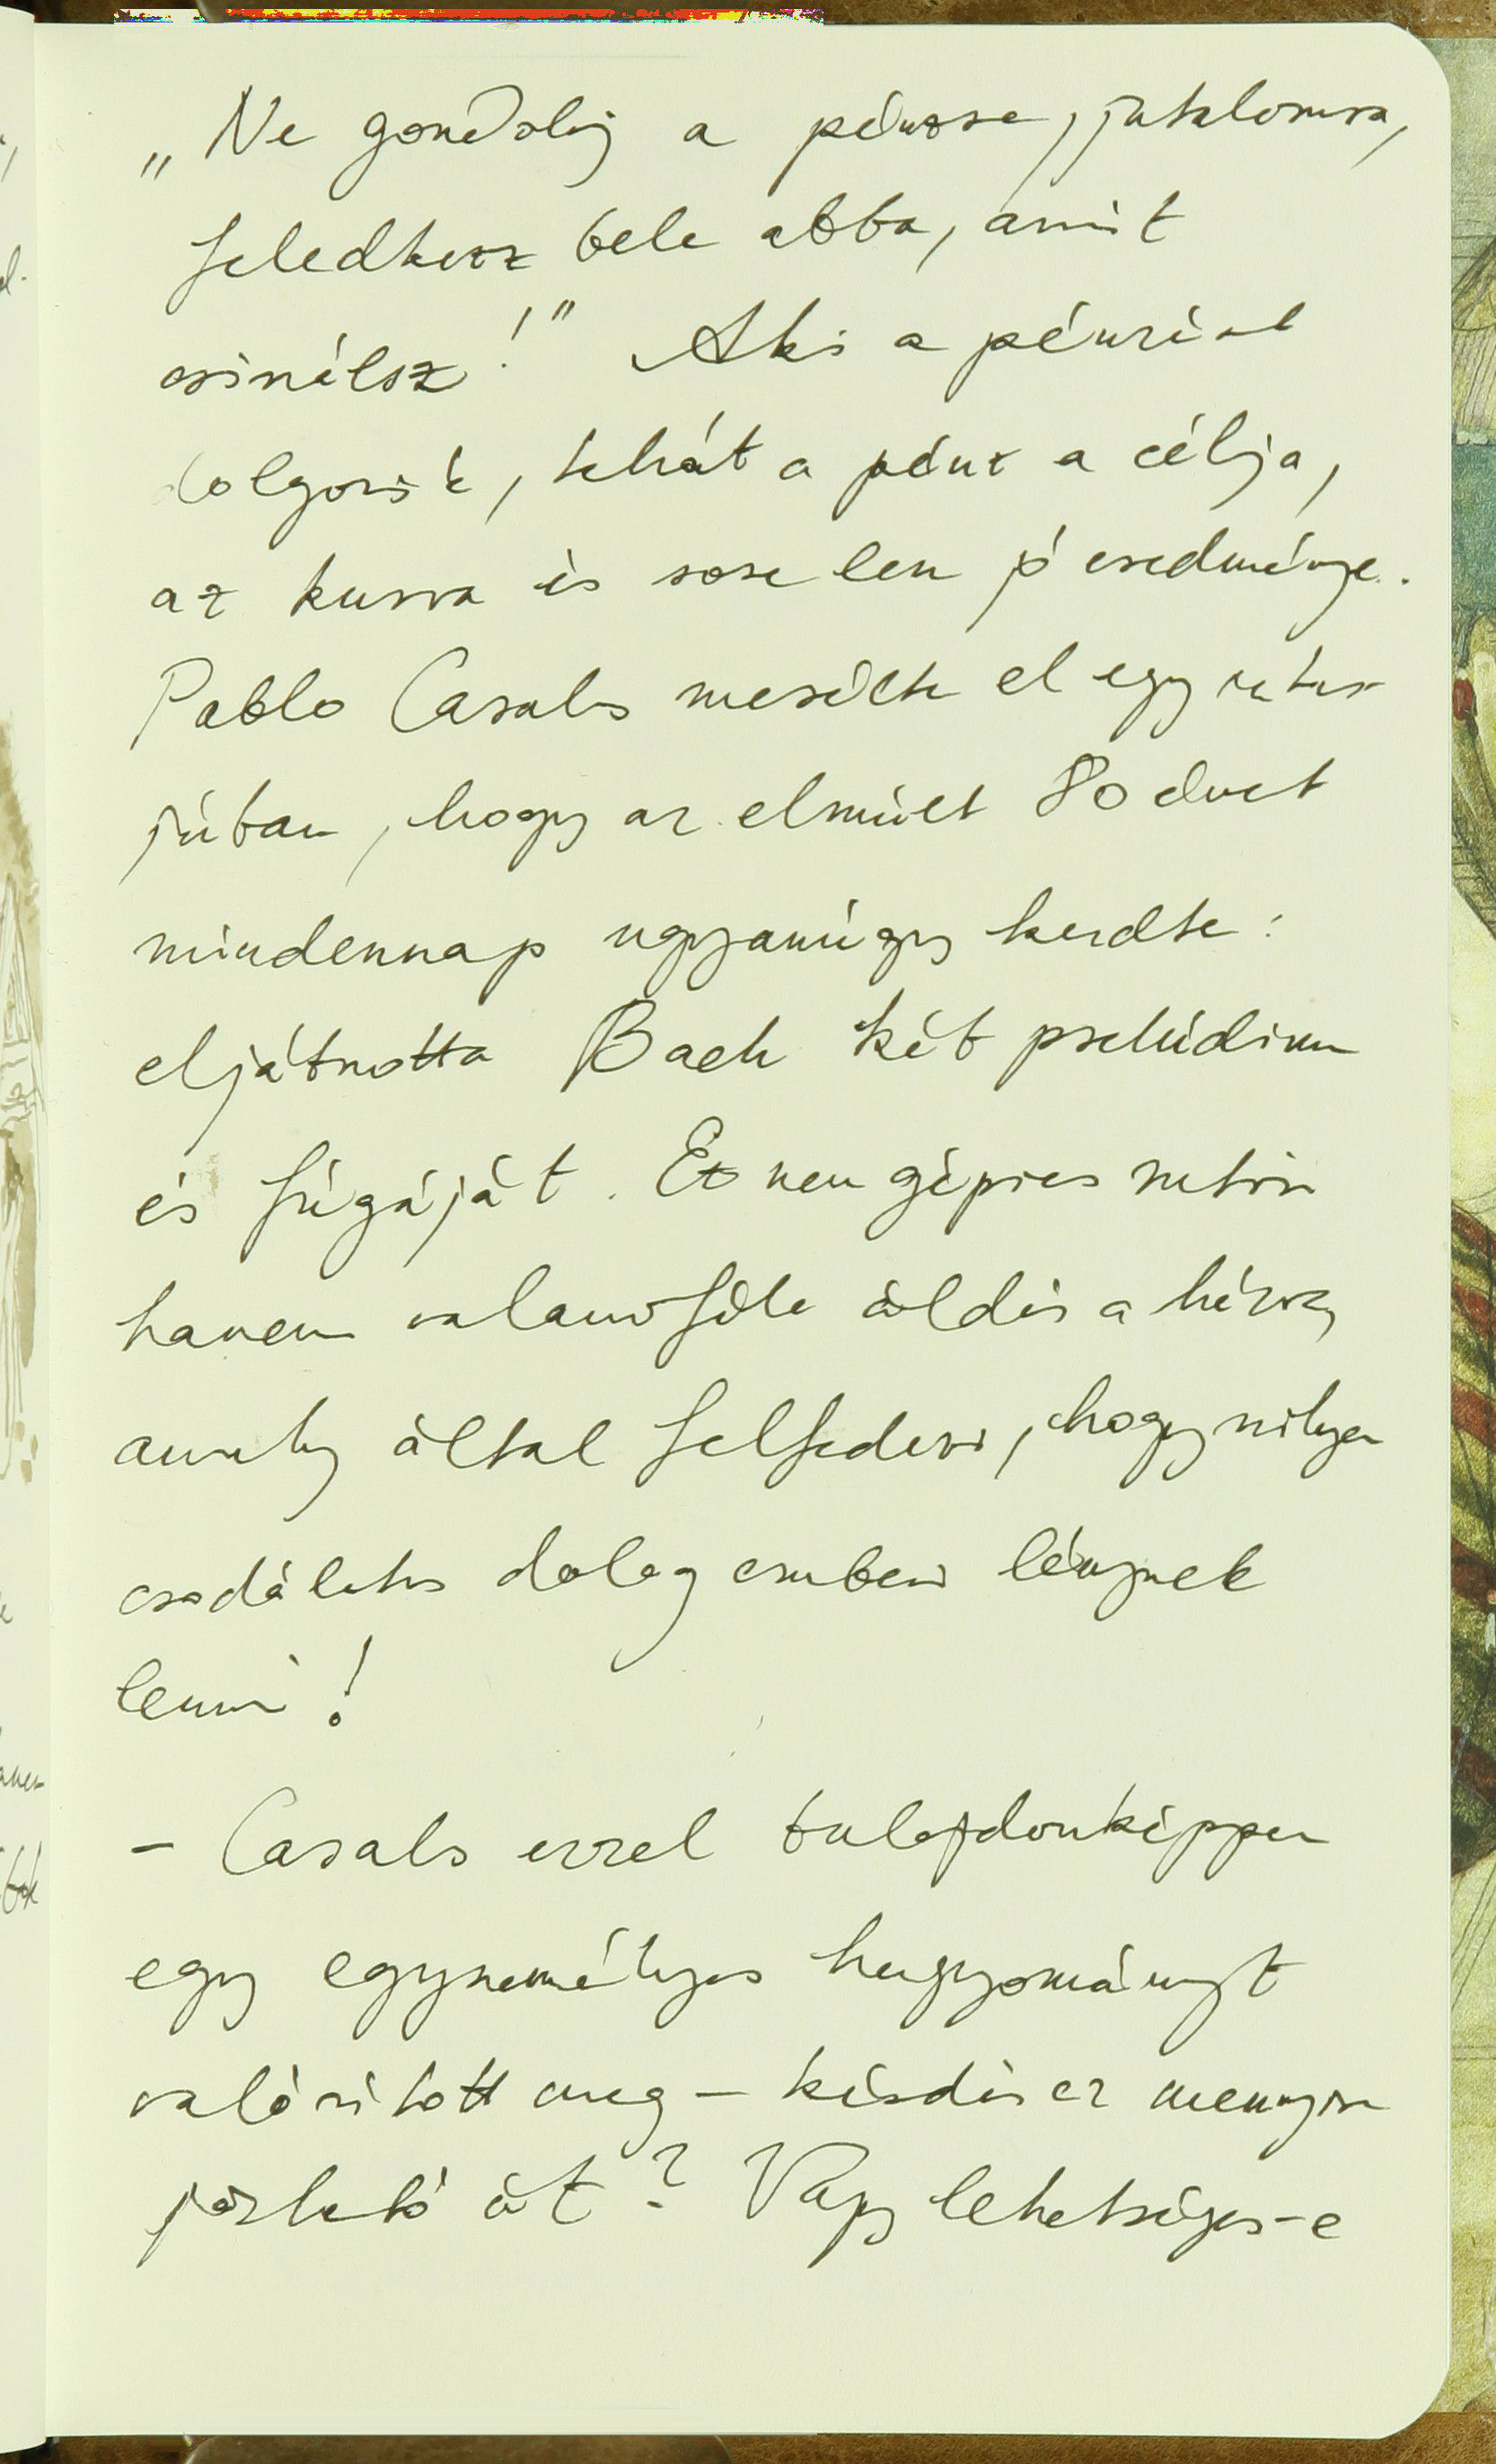 „Ne gondolj a pénzre, jutalomra,
feledkezz bele abba, amit
csinálsz!" Aki a pénzért
dolgozik, tehát a pénz a célja,
az kurva és sose lesz jó eredménye.
Pablo Casals mesélte el egy inter-
júban, hogy az elmúlt 80 évet
mindennap ugyanúgy kezdte:
eljátszotta Bach két prelúdium
és fúgáját. Ez nem gépies rutin
hanem valamiféle áldás a házra,
amely által felfedezi, hogy milyen
csodálatos dolog emberi lénynek
lenni!
- Casals ezzel tulajdonképpen
egy egyszemélyes hagyományt
valósított meg – kérdés ez mennyire
örökíthető át? Vagy lehetséges-e